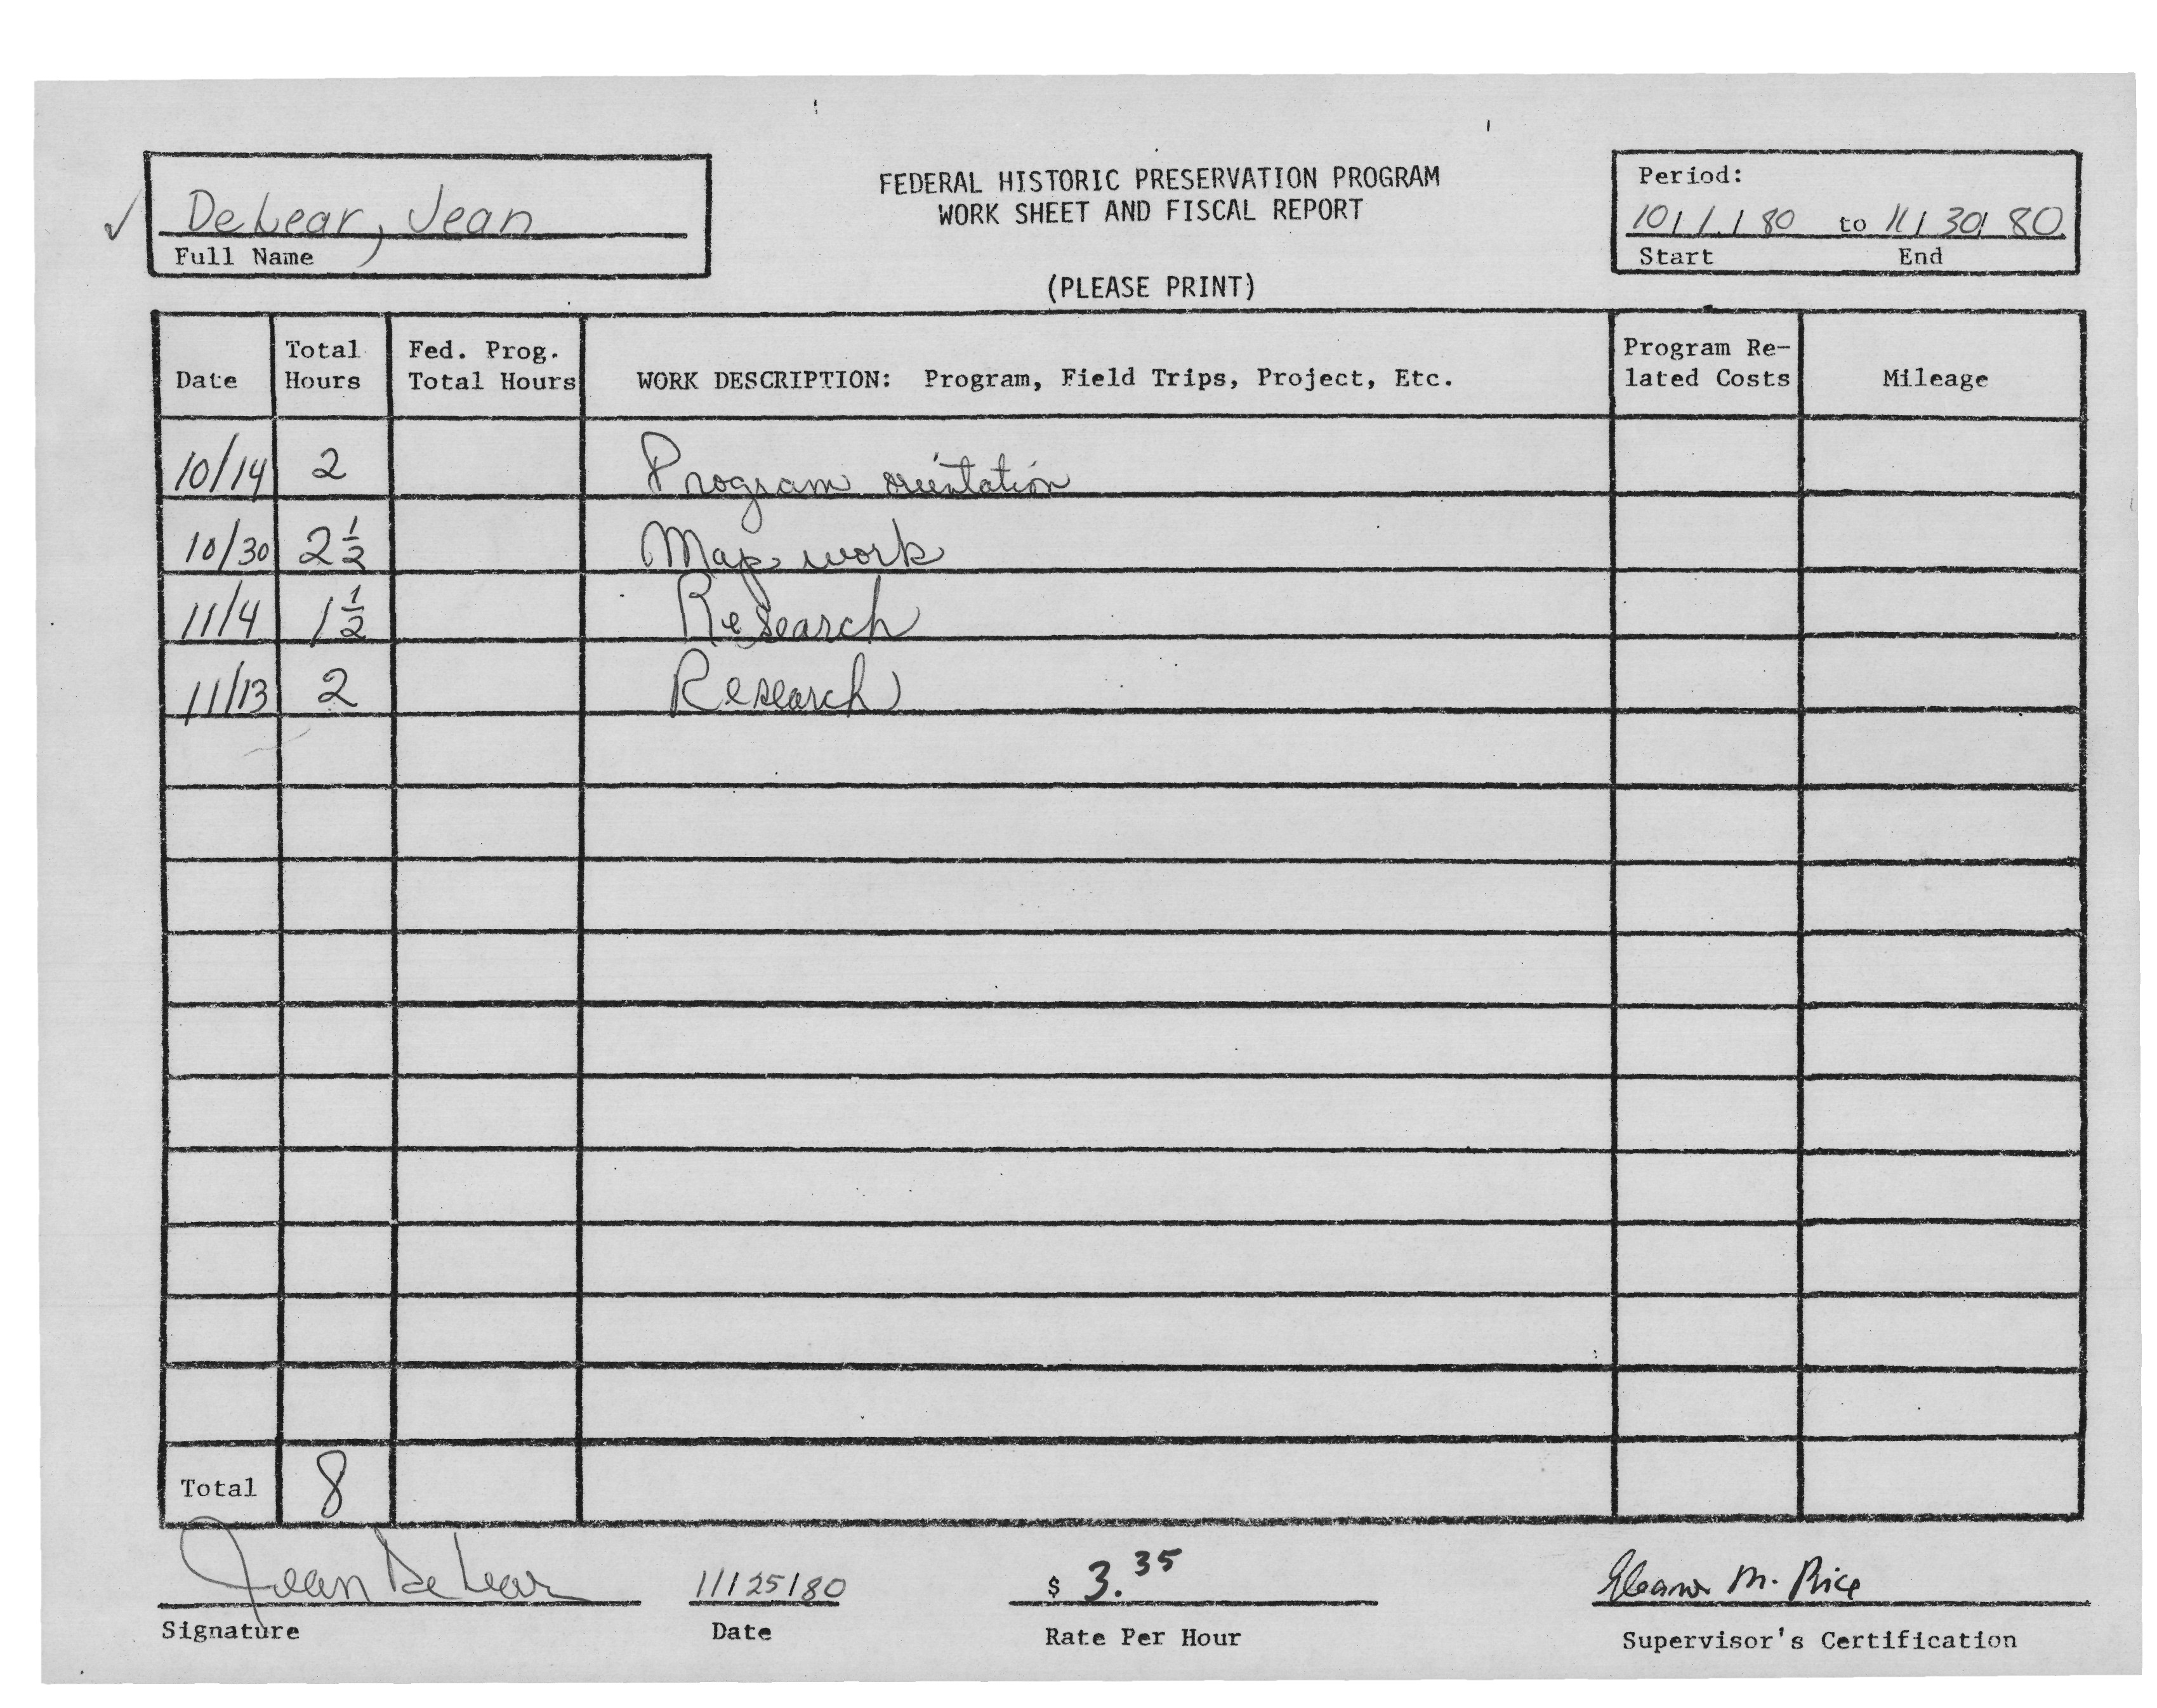 FEDERAL HISTORIC PRESERVATION PROGRAM
WORK SHEET AND FISCAL REPORT
(PLEASE PRINT)
✓ DeLear, Jean
Full Name
Period:
10/1/80 to 11/30/80
Start End
Date Total Hours Fed. Prog. Total Hours WORK DESCRIPTION: Program, Field Trips, Project, Etc. Program Re-lated Costs Mileage
10/14 2 Program orientation
10/30 2 1/2 Map work
11/4 1 1/2 Research
11/13 2 Research
Total 8
Jean DeLear 11/25/80 $ 3.35 Eleanor M. Rice
Signature Date Rate Per Hour Supervisor's Certification